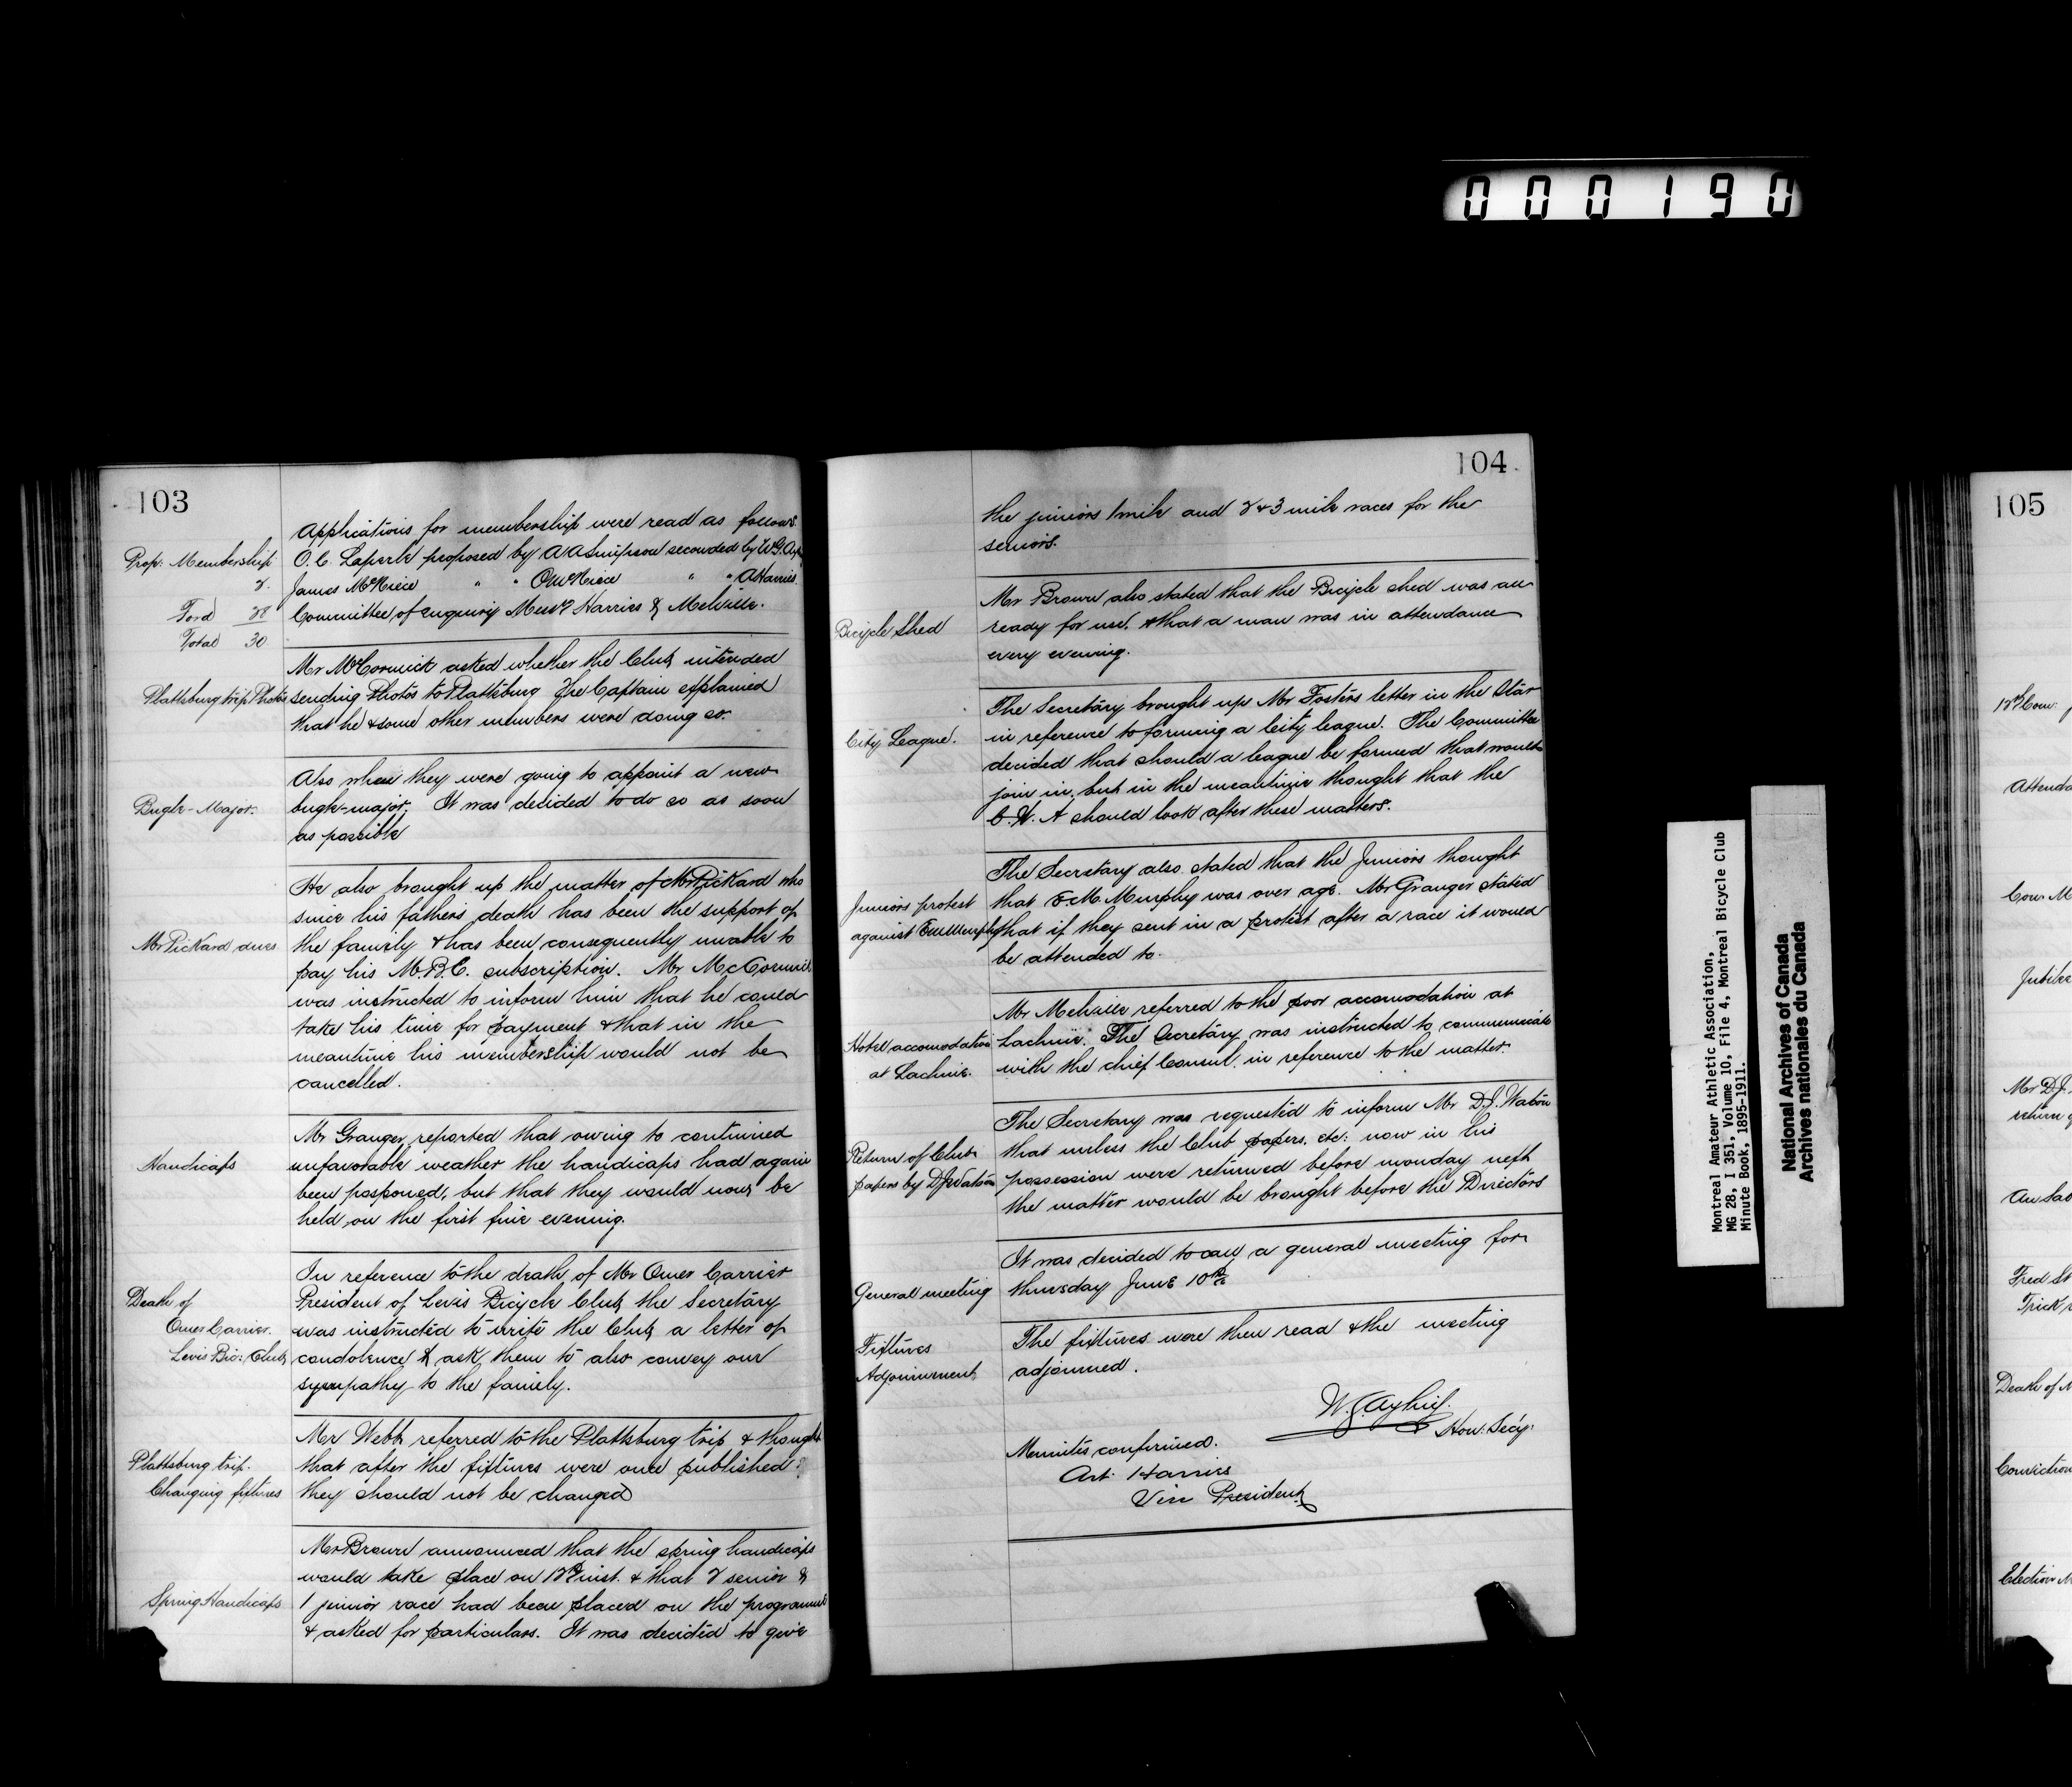 000190
103
Applications for membership were read as follows.
Prop: Membership
O. C. Laperle proposed by A A Simpson seconded by W.G. Ay
2.
James McNiece " " O McNiece " " A Harries.
Ford 28
Committee of enquiry Messrs Harries & Melville.
Total 30
Mr McCormick asked whether the Club intended
Plattsburg trip Photos
sending Photos to Plattsburg The Captain explained
that he & some other members were doing so.
Also when they were going to appoint a new
Bugle-Major.
bugle-major. It was decided to do so as soon
as possible
He also brought up the matter of Mr Pickard who
since his fathers death has been the support of
Mr Pickard dues
the family & has been consequently unable to
pay his M.B.C. subscription. Mr McCormick
was instructed to inform him that he could
take his time for payment & that in the
meantime his membership would not be
cancelled.
Mr Granger reported that owing to continued
Handicaps
unfavorable weather the handicaps had again
been posponed, but that they would now be
held on the first fine evening.
In reference to the death of Mr Omer Carrier
Death of
President of Levis Bicycle Club the Secretary
Omer Carrier.
was instructed to write the Club a letter of
Levis Bic: Club
condolence & ask them to also convey our
sympathy to the family.
Mr Webb referred to the Plattsburg trip & thought
Plattsburg trip.
that after the fixtures were once published
Changing fixtures
they should not be changed
Mr Brown announced that the spring handicaps
would take place on 12th inst. & that 2 senior &
Spring Handicaps
1 junior race had been placed on the programme
& asked for particulars. It was decided to give
104
the juniors 1 mile and 2 & 3 mile races for the
seniors.
Mr Brown also stated that the Bicycle shed was all
Bicycle Shed
ready for use. & that a man was in attendance
every evening.
The Secretary brought up Mr Fosters letter in the Star
City League.
in reference to forming a City league. The Committee
decided that should a league be formed that would
join in, but in the meantime thought that the
C. W. A should look after these matters.
The Secretary also stated that the Juniors thought
Juniors protest
that E M. Murphy was over age. Mr Granger stated
against EM Murphy
that if they sent in a protest after a race it would
be attended to.
Mr Melville referred to the poor accomodation at
Hotel accomodation
Lachine. The Secretary was instructed to communicate
at Lachine.
with the chief Consul. in reference to the matter.
The Secretary was requested to inform Mr D.J. Watson
Return of Club
that unless the Club papers, etc: now in his
papers by DJ Watson
possession were returned before monday next
the matter would be brought before the Directors
It was decided to call a general meeting for
General meeting
thursday June 10th
Fixtures
The fixtures were then read & the meeting
Adjournment
adjourned.
Hon: Secy.
Minutes confirmed.
Art. Harries
Vice President
Montreal Amateur Athletic Association,
MG 28, I 351, Volume 10, File 4, Montreal Bicycle Club
Minute Book, 1895-1911.
National Archives of Canada
Archives nationales du Canada
105
12th Com:
Attenda
Com: M
Jubilee
Mr D.J.
return
Fred St
Trick
Death of M
Conviction
Election M